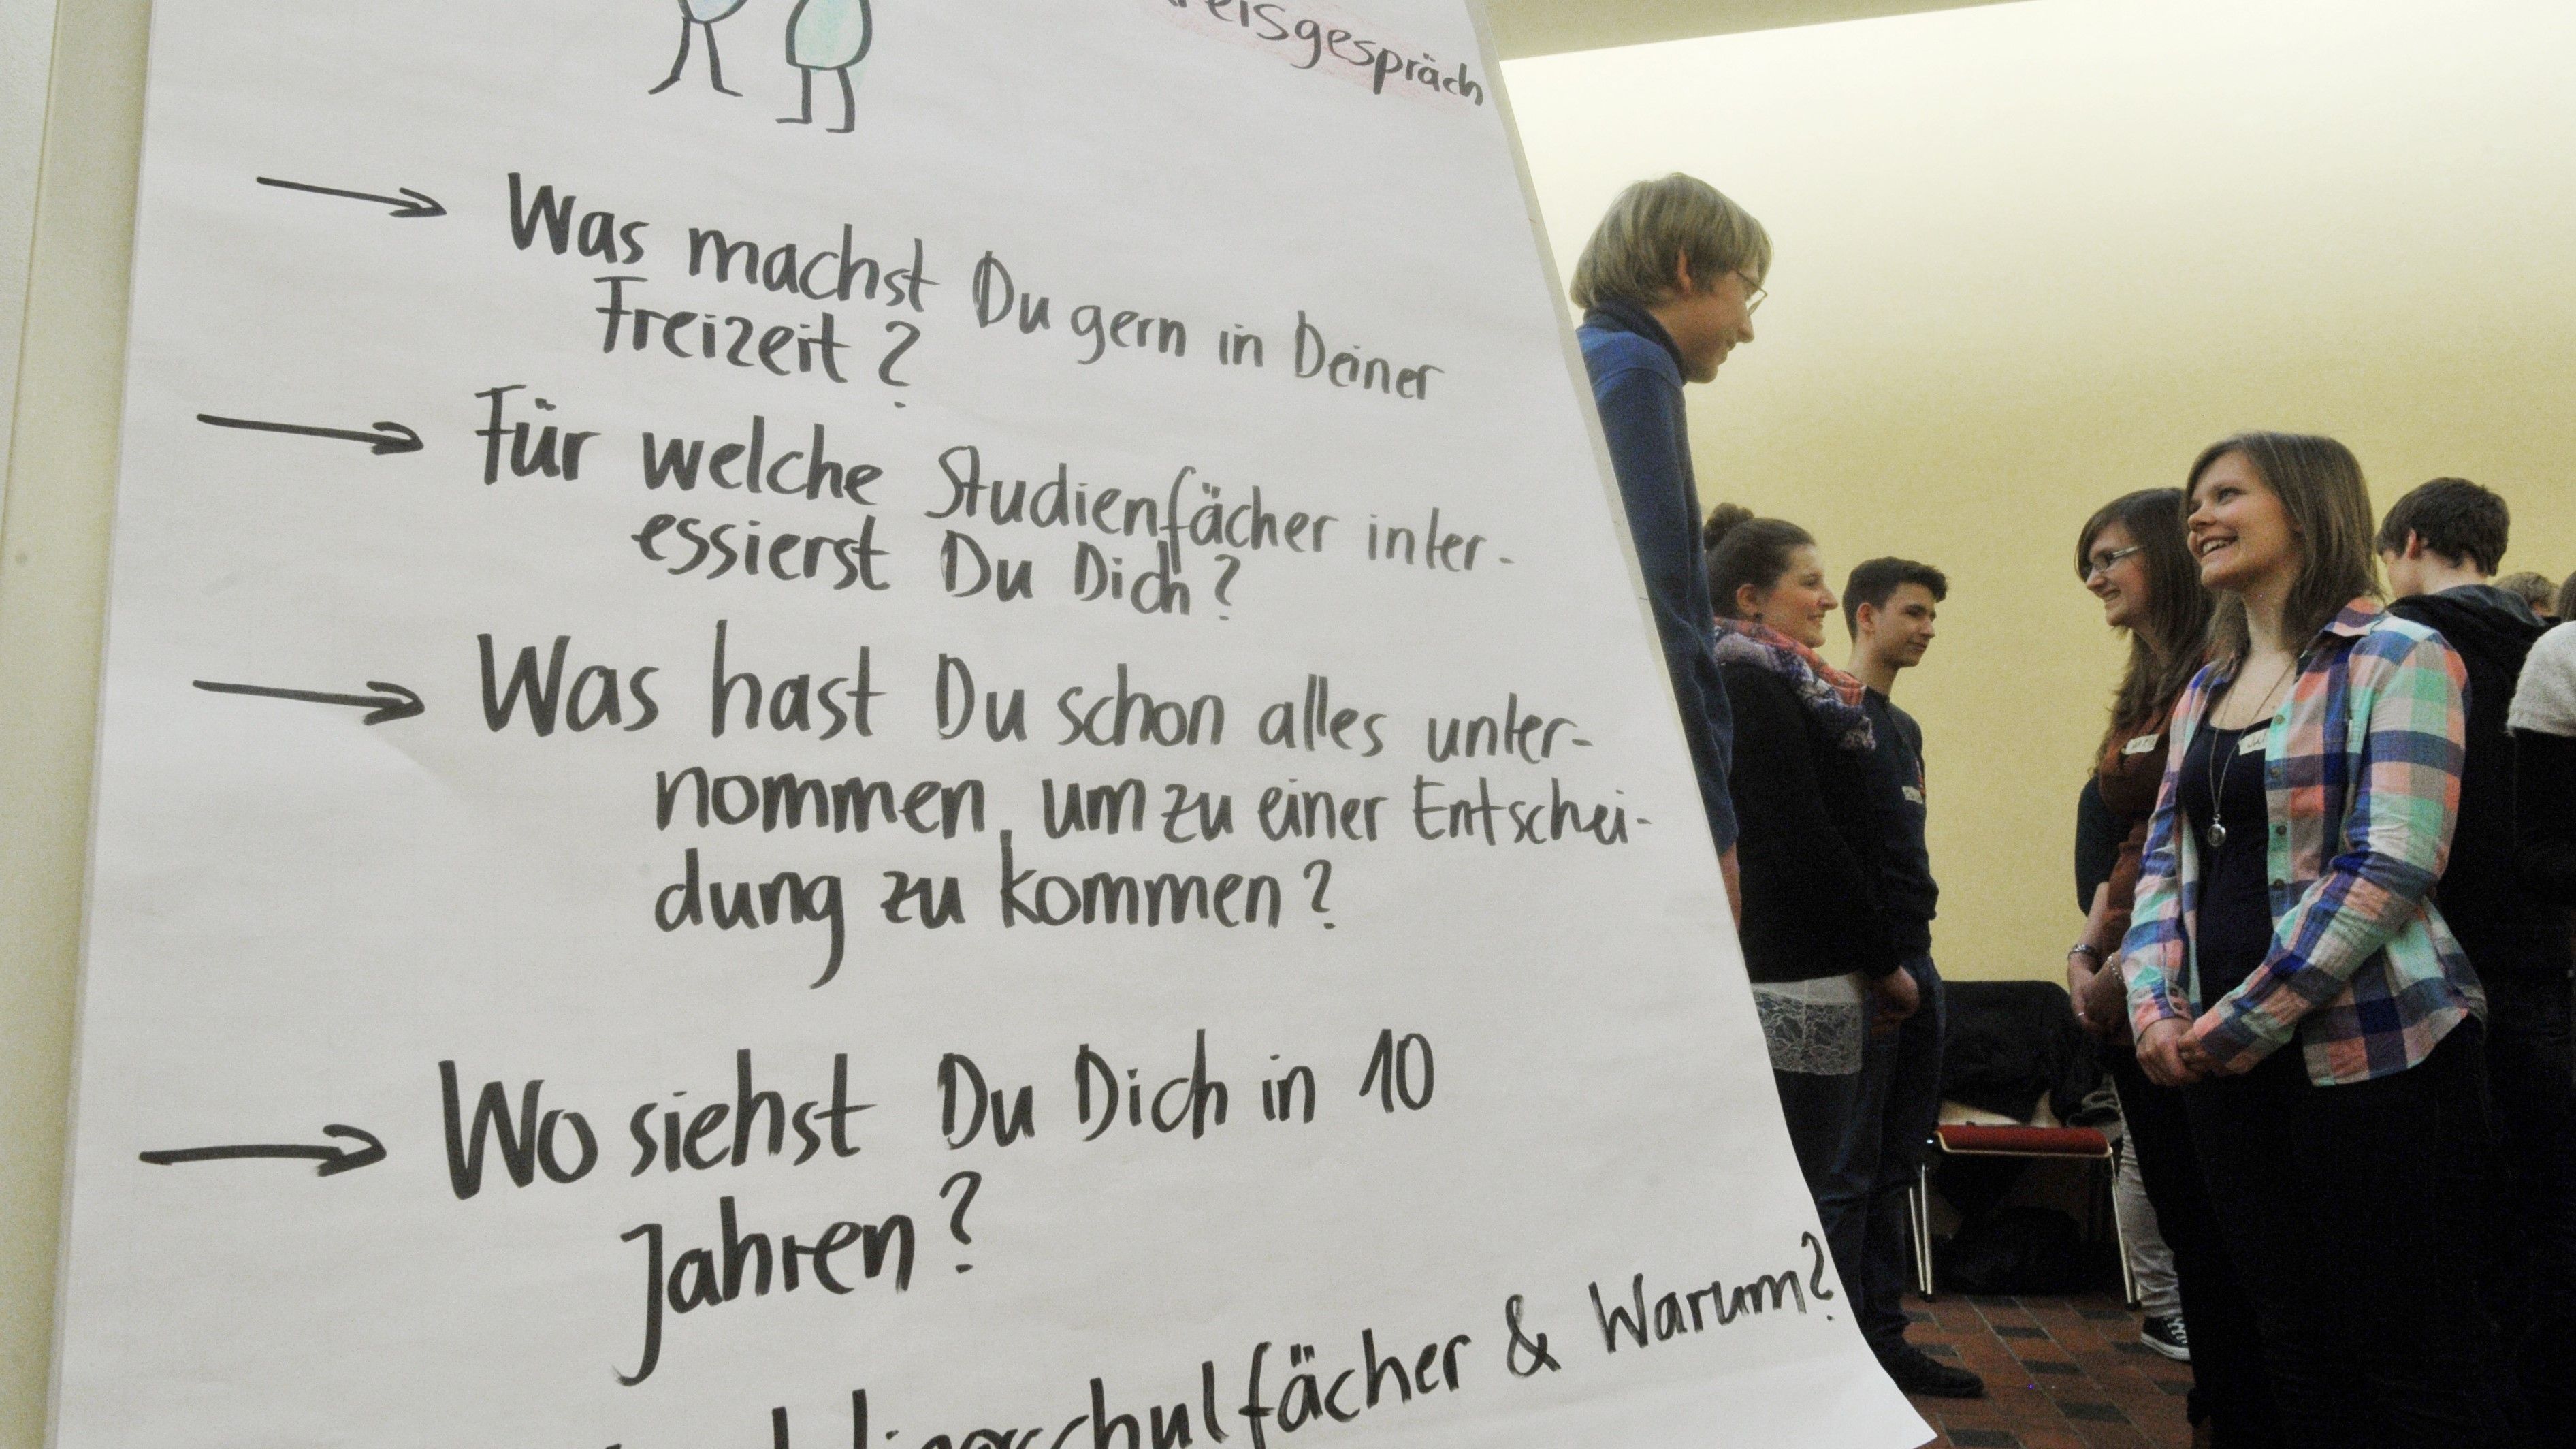 reisgespräch
Was machst Du gern in Deiner
Freizeit?
Für welche Studienfächer inter-
essierst Du Dich?
Was hast Du schon alles unter-
nommen, um zu einer Entschei-
dung zu kommen?
Wo siehst Du Dich in 10
Jahren?
lingsschulfächer & Warum?